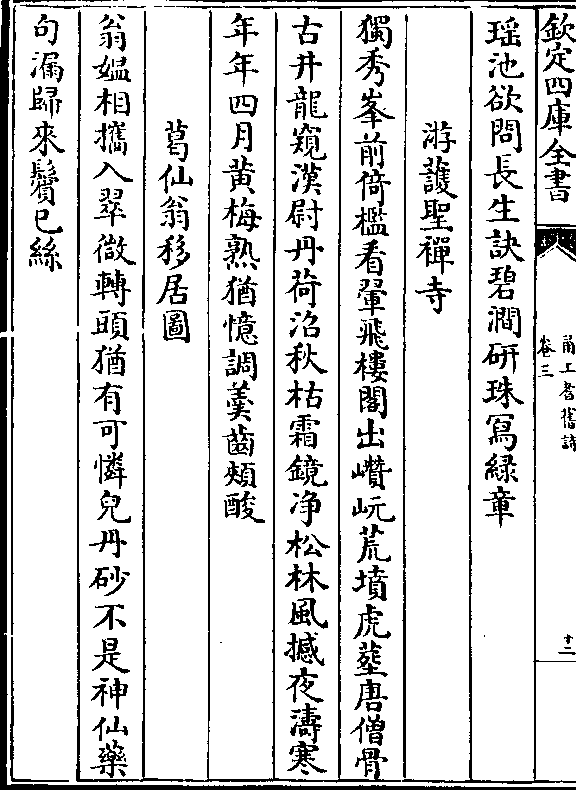 欽定四庫全書
甬上耆舊詩
卷三
十二
瑶池欲問長生訣碧澗研珠冩緑章
游䕶聖禪寺
獨秀峯前倚檻看翬飛樓閣出巑岏荒墳虎塟唐僧骨
古井龍窺漢尉丹荷沼秋枯霜鏡净松林風撼夜濤寒
年年四月黄梅熟猶憶調羮齒頰酸
葛仙翁移居圖
翁媪相攜入翠微轉頭猶有可憐兒丹砂不是神仙藥
句漏歸來鬢已絲